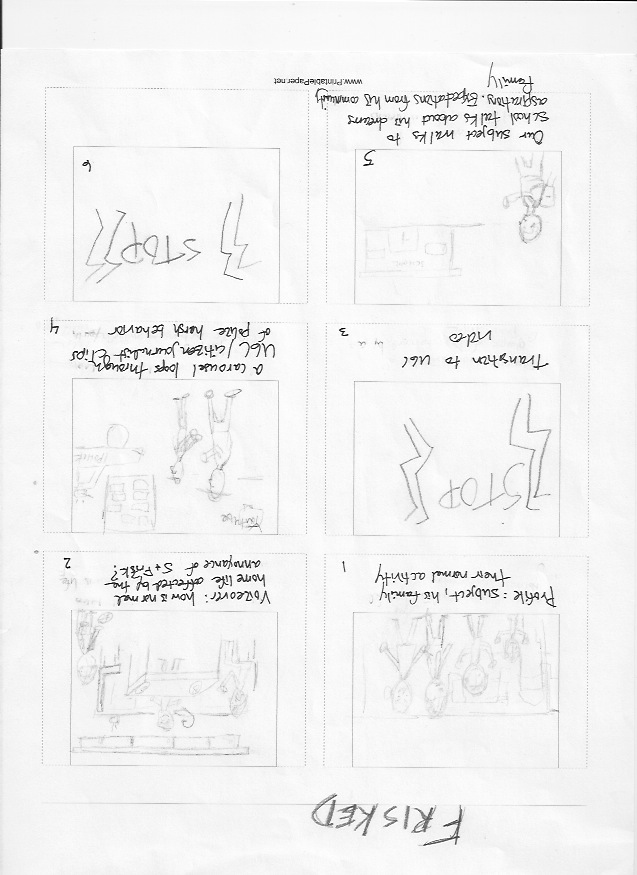 FRISKED
Profile: subject, his family
their normal activity
1
Voiceover: how is normal
home life affected by the
annoyance of S + Frisk?
2
STOP
Transition to UGC
video
3
YouTube
POLICE
A carousel loops through
UGC/citizen journalist clips
of police harsh behavior
4
SCHOOL
5
Our subject walks to
school talks about his dreams
aspirations. Expectations from his community
Family
STOP
6
www.PrintablePaper.net